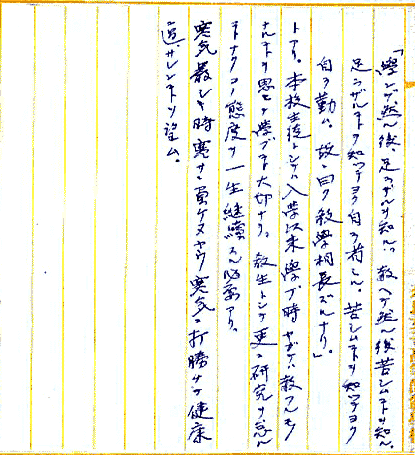 「學ンデ然ル後、足ラザルヲ知ル。教ヘテ然ル後苦シムコトヲ知ル。
足ラザルコトヲ知ッテヨク自ラ省ミル。苦シムコトヲ知ッテヨク
自ラ勤ム。故ニ曰ク教學相長ズルナリ」
トアリ。本校生徒トシテハ入學以来學ブ時ヤガテハ教フルモノ
ナルコトヲ思ヒテ學ブコト大切ナリ。教生トシテ更ニ研究ヲ怠ル
コトナクコノ態度ヲ一生継續スル必要アリ。
寒気嚴シキ時寒サニ負ケヌヤウ寒気ニ打勝ッテ健康
過サレンコトヲ望ム。